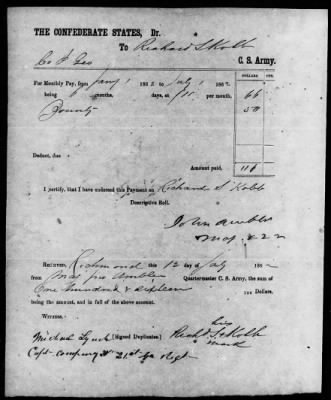 THE CONFEDERATE STATES, Dr.
To Richard S Kolb
Co F Geo C. S. Army.
DOLLARS CTS.
For Monthly Pay, from Jany 1 186 2 to July 1 186 2
being months, days, at $11 per month, 66
Bounty 50
Deduct, due
Amount paid, 116
I justify, that I have endorsed this Payment on Richard S Kolb
Descriptive Roll.
John Ambler
Maj &
RECEIVED, Richmond this 12 day of July 186
from Maj Jno Ambler Quartermaster C. S. Army, the sum of
One hundred & Sixteen Dollars,
being the amount, and in full of the above account.
WITNESS.
his
Michael Lynch [Signed Duplicates] Richd S Kolb
mark
Capt Company 21st Ga Regt